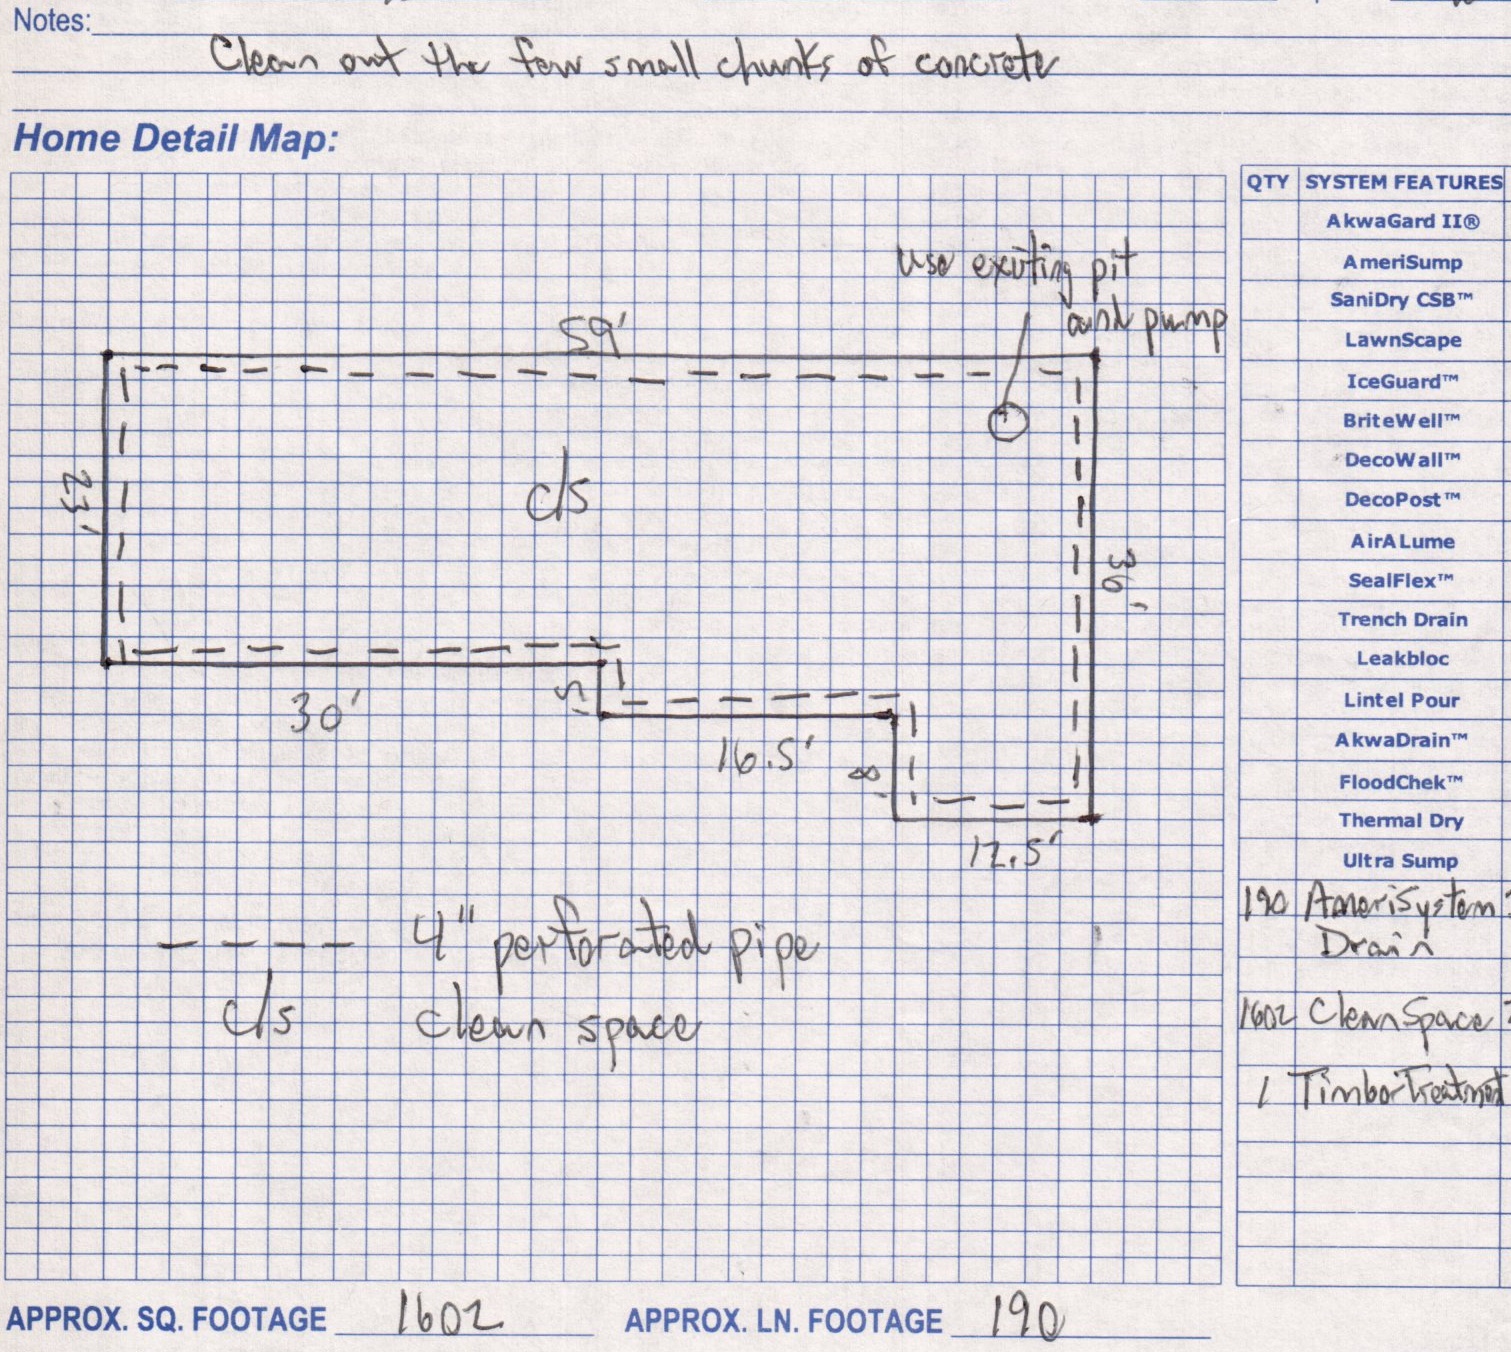 Notes:
Clean out the few small chunks of concrete
Home Detail Map:
QTY SYSTEM FEATURES
AkwaGard II®
AmeriSump
SaniDry CSB™
LawnScape
IceGuard™
BriteWell™
DecoWall™
DecoPost™
AirALume
SealFlex™
Trench Drain
Leakbloc
Lintel Pour
AkwaDrain™
FloodChek™
Thermal Dry
Ultra Sump
190 AmeriSystem
Drain
1602 CleanSpace
1 Timbor Treatment
use existing pit
and pump
59'
23'
c/s
36'
30'
5'
16.5'
8'
12.5'
4" perforated pipe
c/s clean space
APPROX. SQ. FOOTAGE 1602 APPROX. LN. FOOTAGE 190